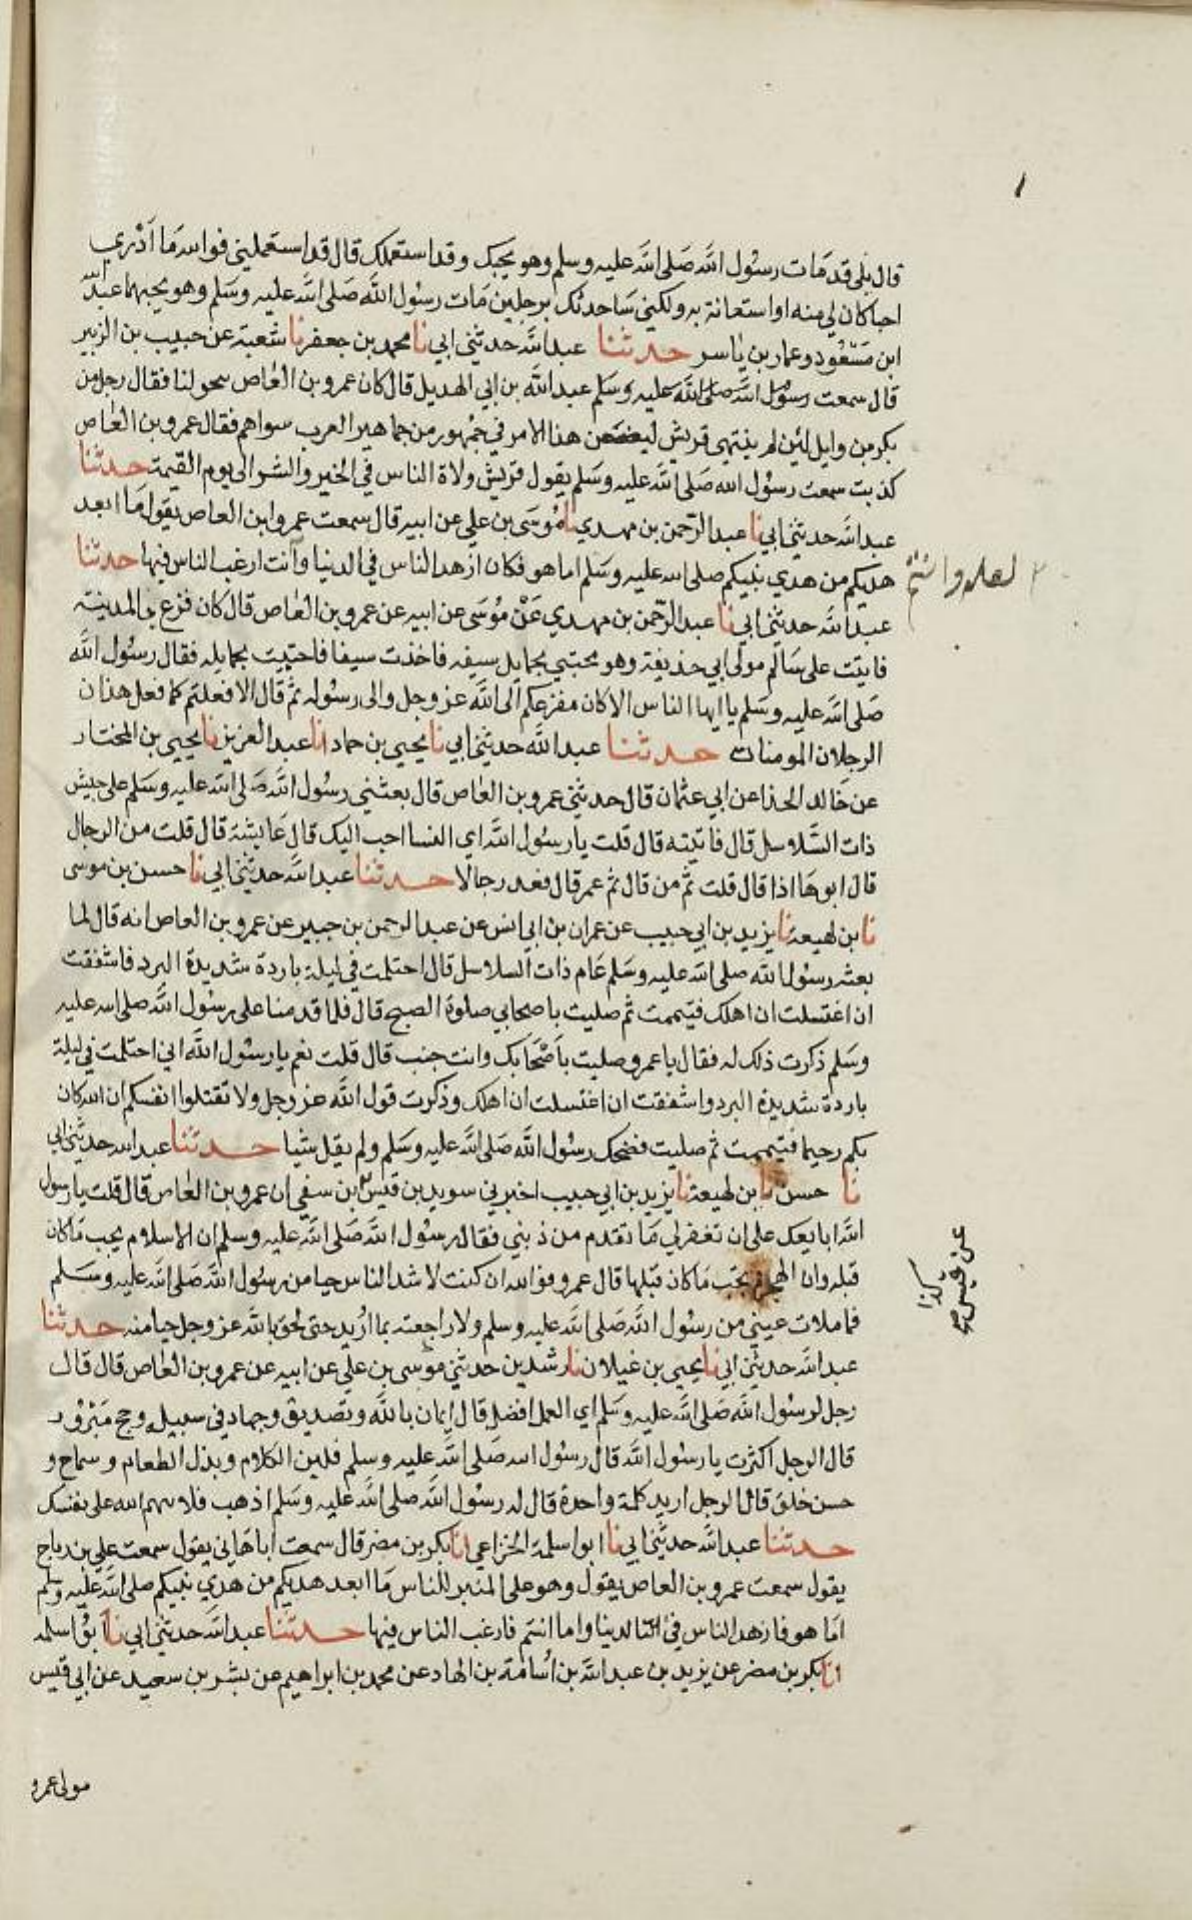 قال بلى قد مات رسول الله صلى الله عليه وسلم وهو يحبك وقد استعملك قال قد استعملني فوالله ما ادري
احبا كان لي منه او استعانة به ولكني ساحدثك برجلين مات رسول الله صلى الله عليه وسلم وهو يحبهما عبد الله
ابن مسعود وعمار بن ياسر حدثنا عبد الله حدثني ابي نا محمد بن جعفر نا شعبة عن حبيب بن الزبير
قال سمعت رسول الله صلى الله عليه وسلم عبد الله بن ابي الهديل قال كان عمرو بن العاص يتحولنا فقال رجل من
بكر بن وايل لئن لم ينتهي قريش ليضعن هذا الامر في جمهور من جماهير العرب سواهم فقال عمرو بن العاص
كذبت سمعت رسول الله صلى الله عليه وسلم يقول قريش ولاة الناس في الخير والشر الى يوم القيمة حدثنا
عبد الله حدثني ابي نا عبد الرحمن بن مهدي نا موسى بن علي عن ابيه قال سمعت عمرو ابن العاص يقول ما ابعد
هديكم من هدي نبيكم صلى الله عليه وسلم اما هو فكان ازهد الناس في الدنيا وانت ارغب الناس فيها حدثنا
لعله وانتم
عبد الله حدثني ابي نا عبد الرحمن بن مهدي عن موسى عن ابيه عن عمرو بن العاص قال كان فزع بالمدينة
فاتيت على سالم مولى ابي حذيفة وهو محتبي بحمايل سيفه فاخذت سيفا فاحتبيت بحمايله فقال رسول الله
صلى الله عليه وسلم يا ايها الناس الا كان مفزعكم الى الله عز وجل والى رسوله ثم قال الا فعلتم كما فعل هذان
الرجلان المومنان حدثنا عبد الله حدثني ابي نا يحيى بن حماد انا عبد العزيز نا يحيى بن المختار
عن خالد الحذا عن ابي عثمان قال حدثني عمرو بن العاص قال بعثني رسول الله صلى الله عليه وسلم على جيش
ذات السلاسل قال فاتيته قال قلت يا رسول الله اي النسا احب اليك قال عايشة قال قلت من الرجال
قال ابوها اذا قال قلت ثم من قال ثم عمر قال فعد رجالا حدثنا عبد الله حدثني ابي نا حسن بن موسى
نا بن لهيعة نا يزيد بن ابي حبيب عن عمران بن ابي انس عن عبد الرحمن بن جبير عن عمرو بن العاص انه قال لما
بعثه رسول الله صلى الله عليه وسلم عام ذات السلاسل قال احتلمت في ليلة باردة شديدة البرد فاشفقت
ان اغتسلت ان اهلك فتيممت ثم صليت باصحابي صلوة الصبح قال فلما قدمنا على رسول الله صلى الله عليه
وسلم ذكرت ذلك له فقال يا عمرو صليت باصحابك وانت جنب قال قلت نعم يا رسول الله اني احتلمت في ليلة
باردة شديدة البرد واشفقت ان اغتسلت ان اهلك وذكرت قول الله عز وجل ولا تقتلوا انفسكم ان الله كان
بكم رحيما فتيممت ثم صليت فضحك رسول الله صلى الله عليه وسلم ولم يقل شيا حدثنا عبد الله حدثني ابي
نا حسن نا بن لهيعة نا يزيد بن ابي حبيب اخبرني سويد بن قيس بن سفي ان عمرو بن العاص قال قلت يا رسول
عن قيس
كذا
الله ابايعك على ان تغفر لي ما تقدم من ذنبي فقال رسول الله صلى الله عليه وسلم ان الاسلام يجب ما كان
قبله وان الهجرة تجب ما كان قبلها قال عمرو فوالله ان كنت لاشد الناس حيا من رسول الله صلى الله عليه وسلم
فما ملات عيني من رسول الله صلى الله عليه وسلم ولا راجعته بما اريد حتى لحق بالله عز وجل حيا منه حدثنا
عبد الله حدثني ابي نا يحيى بن غيلان نا رشدين حدثني موسى بن علي عن ابيه عن عمرو بن العاص قال قال
رجل لرسول الله صلى الله عليه وسلم اي العمل افضل قال ايمان بالله وتصديق وجهاد في سبيله وحج مبرور
قال الرجل اكثرت يا رسول الله قال رسول الله صلى الله عليه وسلم فلين الكلام وبذل الطعام وسماح و
حسن خلق قال الرجل اريد كلمة واحدة قال له رسول الله صلى الله عليه وسلم اذهب فلا تتهم الله على نفسك
حدثنا عبد الله حدثني ابي نا ابوا سلمة الخزاعي انا بكر بن مضر قال سمعت ابا هاني يقول سمعت علي بن رباح
يقول سمعت عمرو بن العاص يقول وهو على المنبر للناس ما ابعد هديكم من هدي نبيكم صلى الله عليه وسلم
اما هو فازهد الناس في الدنيا واما انتم فارغب الناس فيها حدثنا عبد الله حدثني ابي نا ابوا سلمه
انا بكر بن مضر عن يزيد بن عبد الله بن اسامة بن الهاد عن محمد بن ابراهيم عن بشر بن سعيد عن ابي قيس
مولى عمرو